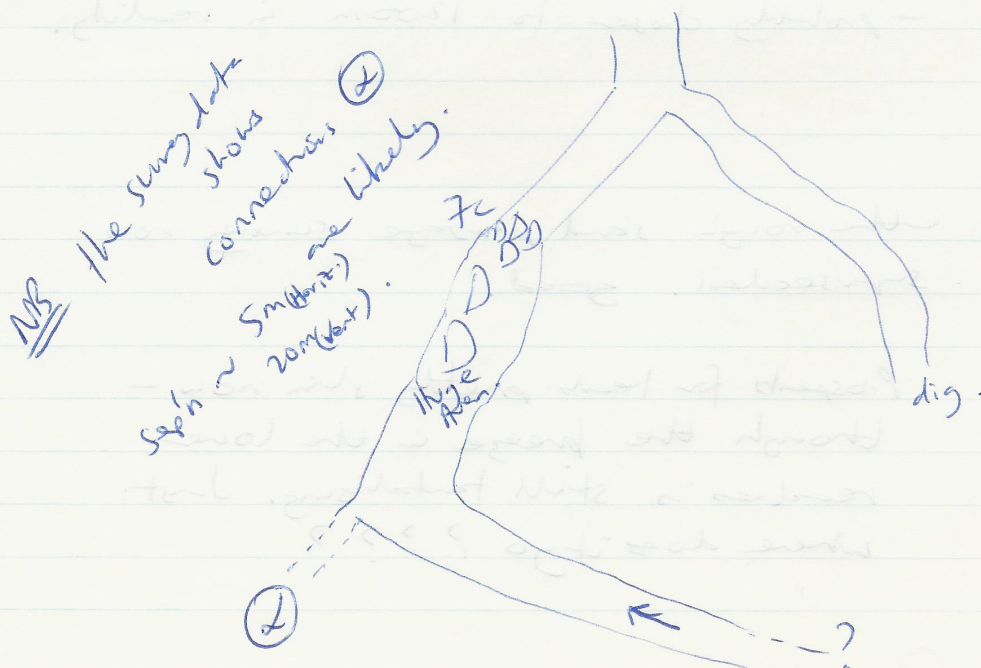 NB the survey data
shows
connections α
are likely.
sep'n ~ 5m (Horiz.)
20m (Vert).
7c
Huge
Aven.
dig.
α
?